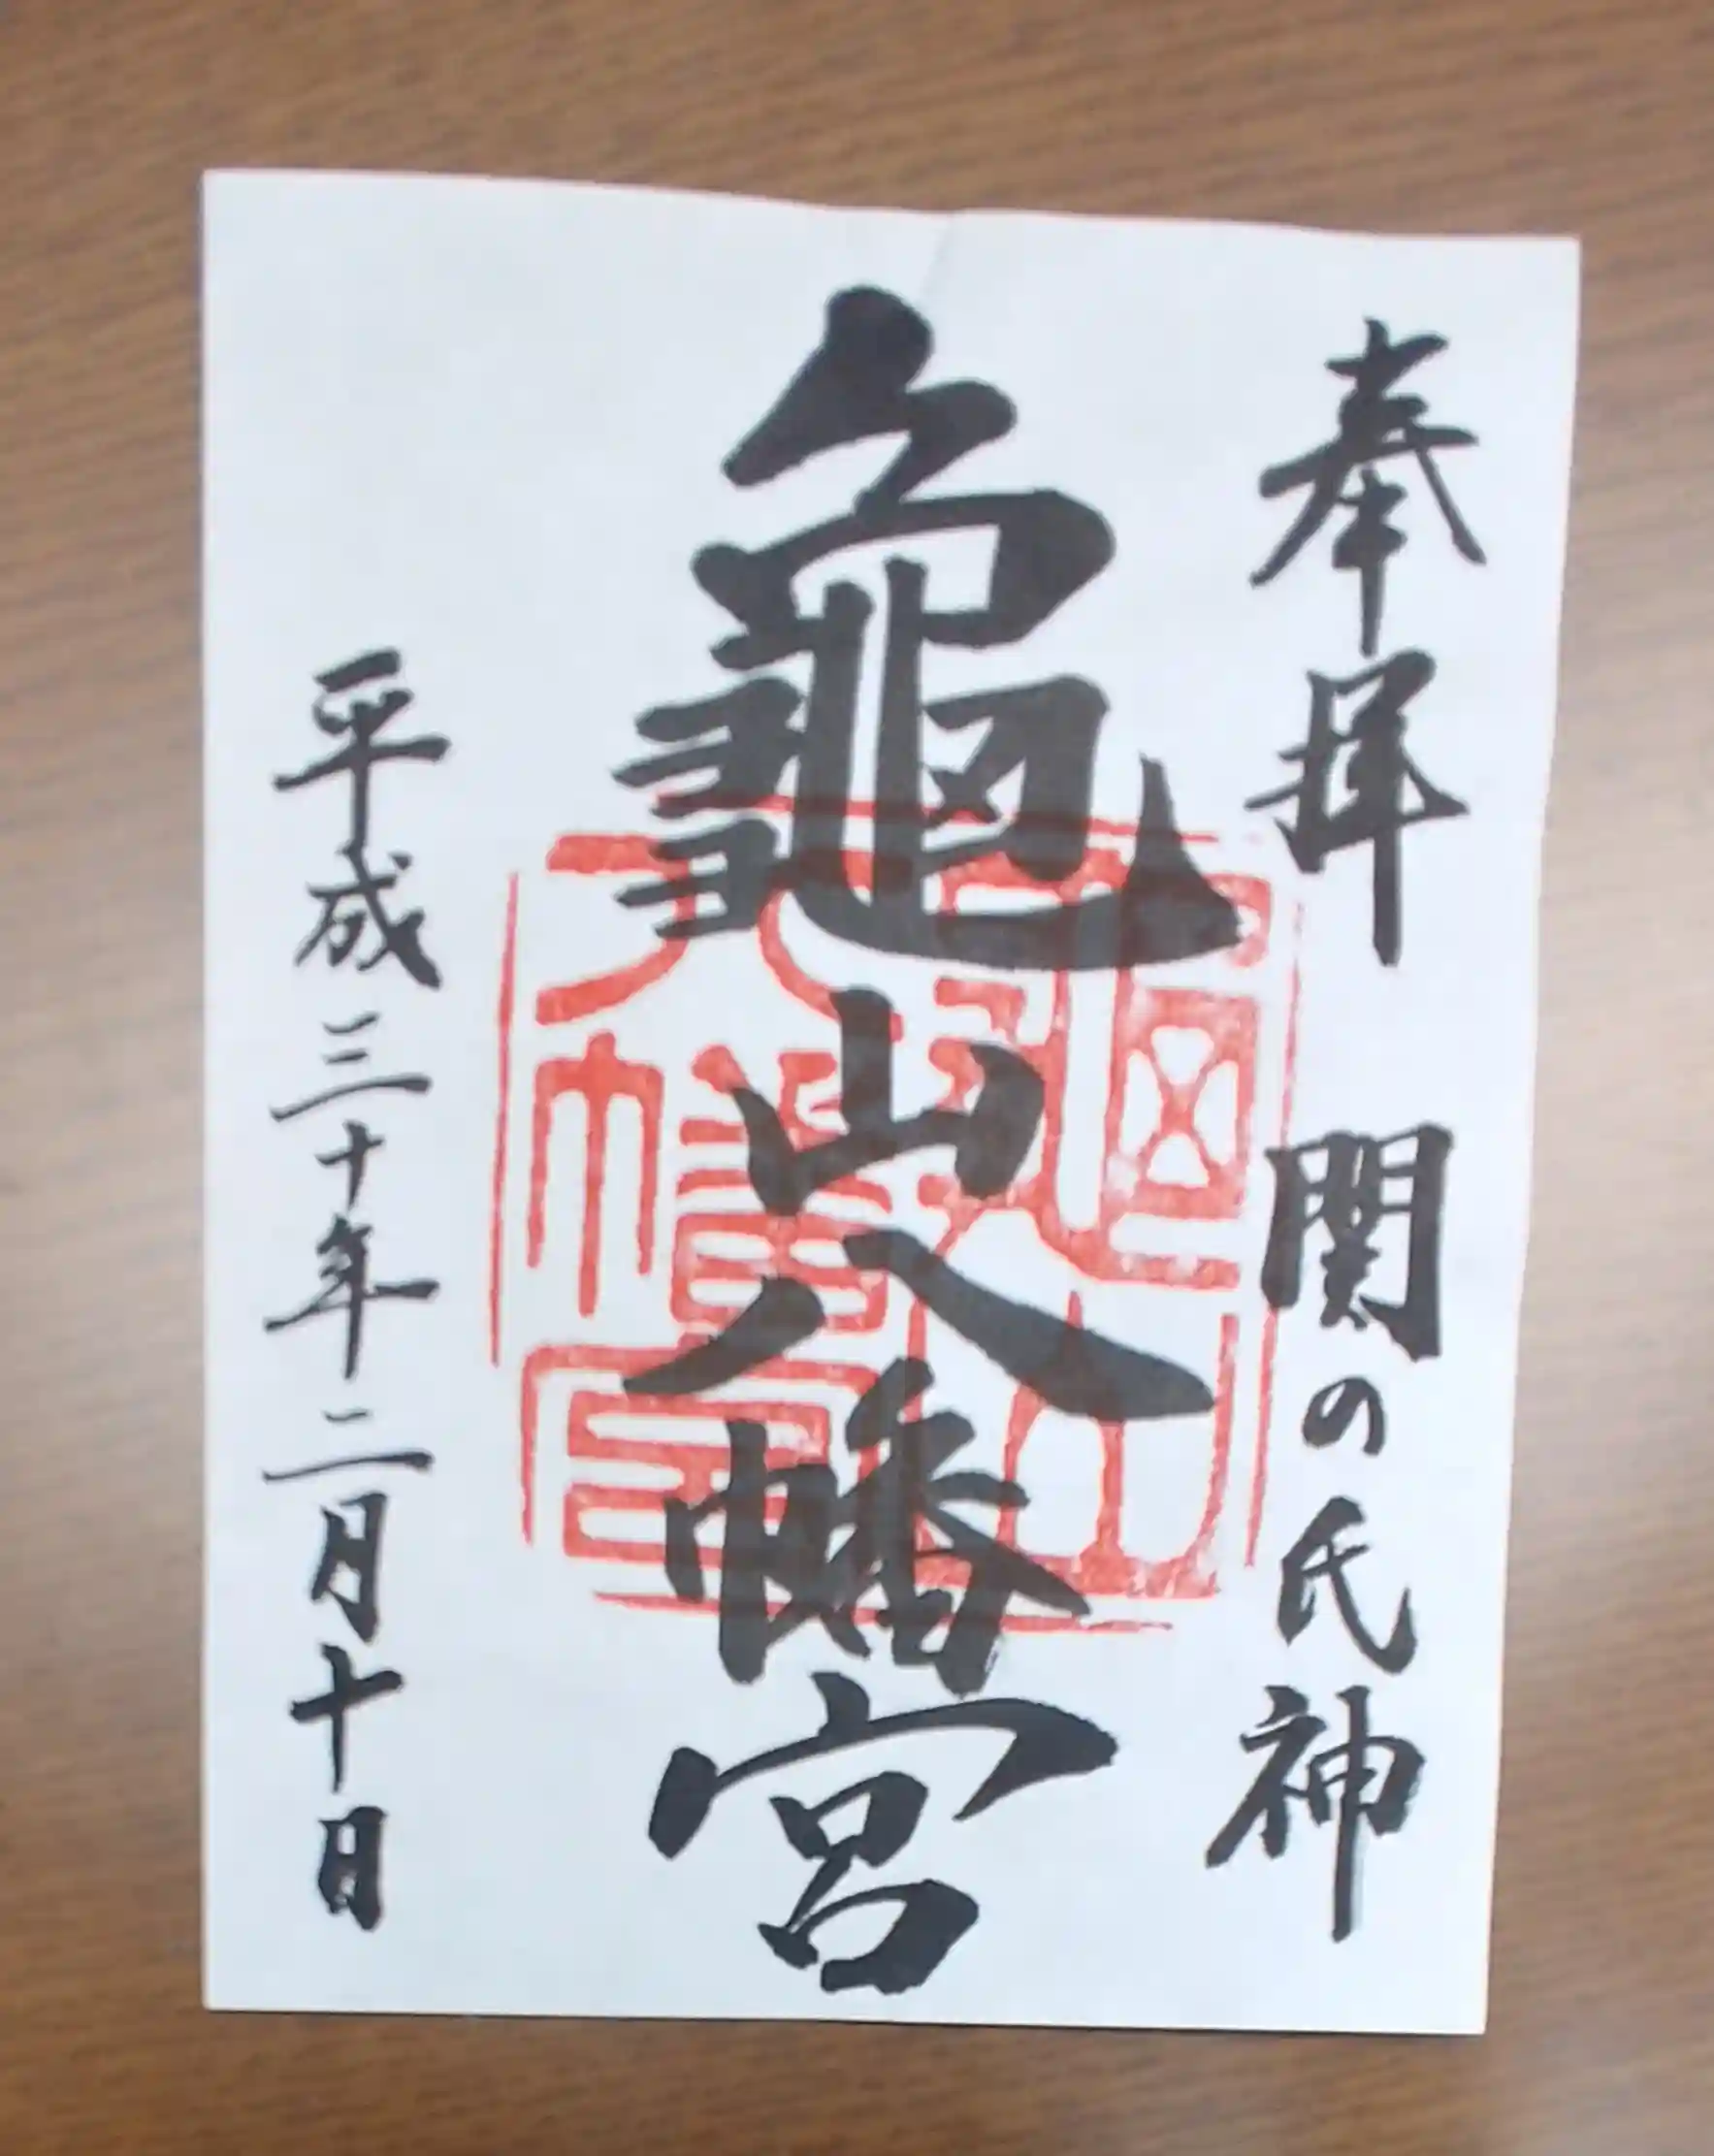 奉拝 関の氏神
龜山八幡宮
平成三十年二月十日
龜山八幡宮